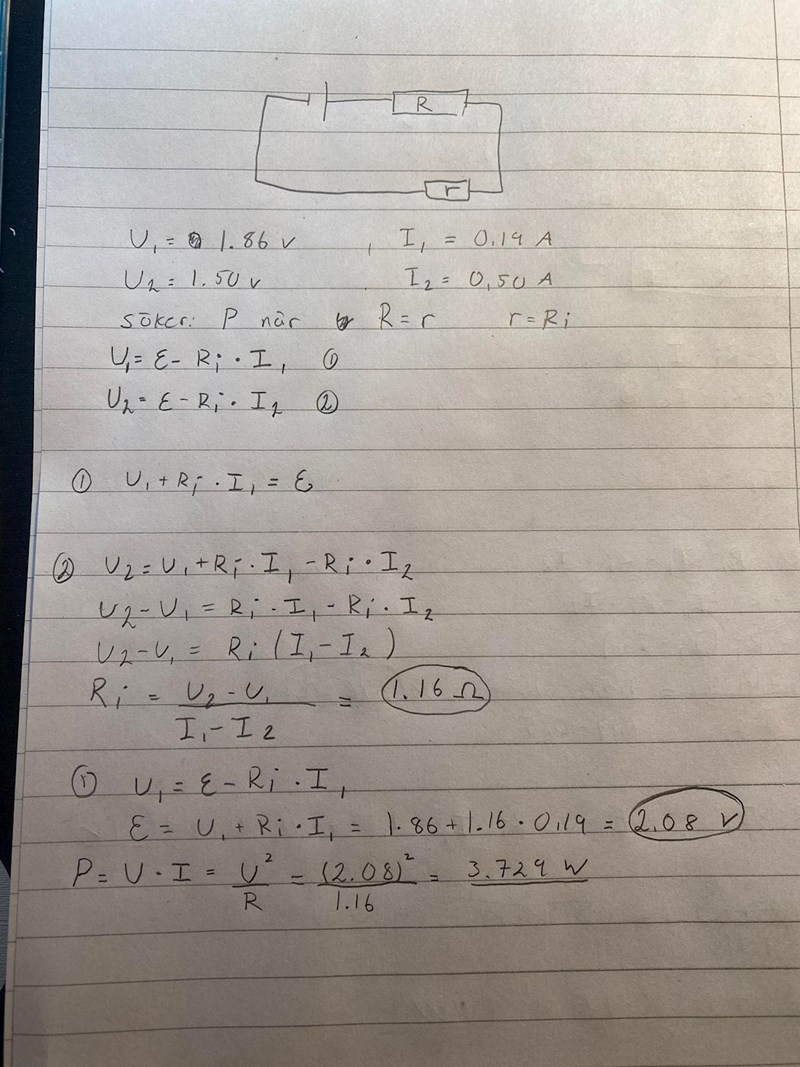 R
r
U₁ = 1.86 v , I₁ = 0,19 A
U₂ = 1.50 v I₂ = 0,50 A
söker: P när R = r r = Ri
U₁ = ε - Ri · I₁ ①
U₂ = ε - Ri · I₂ ②
① U₁ + Ri · I₁ = ε
② U₂ = U₁ + Ri · I₁ - Ri · I₂
U₂ - U₁ = Ri · I₁ - Ri · I₂
U₂ - U₁ = Ri (I₁ - I₂)
Ri = (U₂ - U₁)/(I₁ - I₂) = 1.16 Ω
① U₁ = ε - Ri · I₁
ε = U₁ + Ri · I₁ = 1.86 + 1.16 · 0,19 = 2.08 V
P = U · I = U²/R = (2.08)²/1.16 = 3.729 W